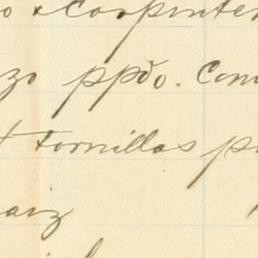 o & Carpinter
zo ppdo. Com
tornillos p
aiz